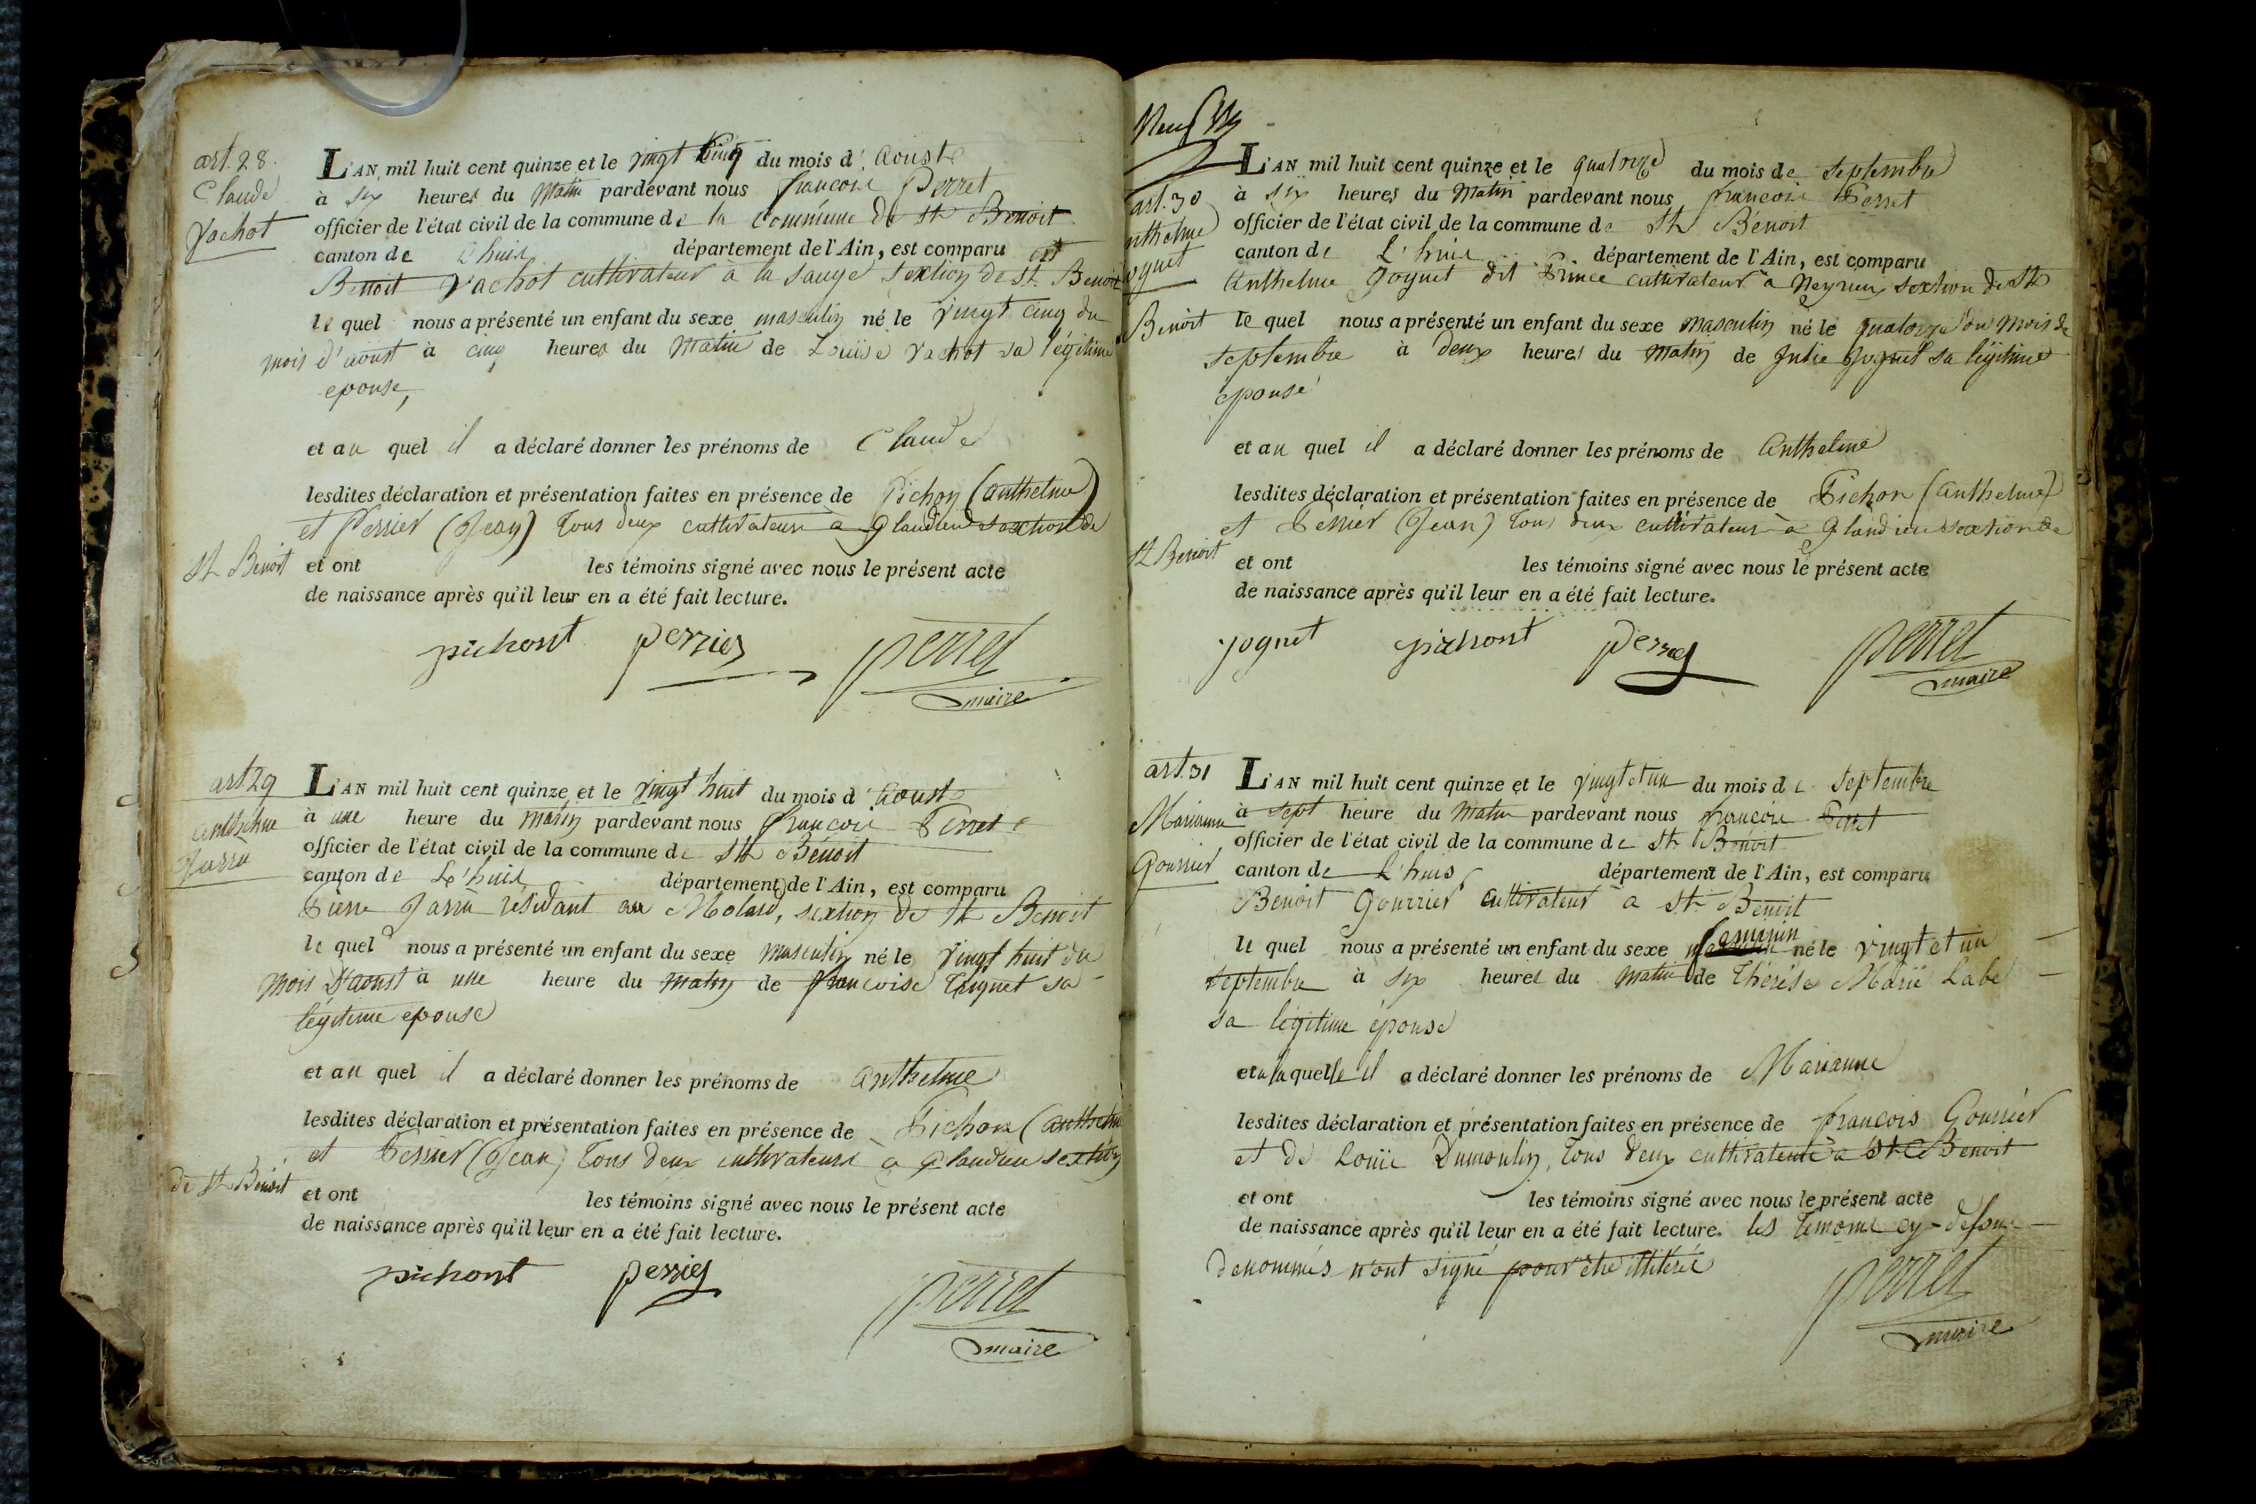 art. 28.
Claude
Vachot
L'AN mil huit cent quinze et le vingt cinq du mois d' Aoust
à six heures du matin pardevant nous françois Perret
officier de l'état civil de la commune de la commune de St Benoit
canton de Lhuis département de l'Ain, est comparu
Benoit Vachot cultivateur à la sauge sextion de St Benoit
le quel nous a présenté un enfant du sexe masculin né le vingt cinq du
mois d'aoust à cinq heures du matin de Louise Vachot sa légitime
epouse,
et au quel il a déclaré donner les prénoms de Claude
lesdites déclaration et présentation faites en présence de Pichon (anthelme)
et Perrier (Jean) tous deux cultivateurs a Glandieu sextion de
St Benoit et ont les témoins signé avec nous le présent acte
de naissance après qu'il leur en a été fait lecture.
pichont perrier perret
maire
art 29
anthelme
Jarrin
L'AN mil huit cent quinze et le vingt huit du mois d' Aoust
à une heure du matin pardevant nous françois Perret
officier de l'état civil de la commune de St Benoit
canton de L'huis département de l'Ain, est comparu
Pierre residant au Molard, sextion de St Benoit
le quel nous a présenté un enfant du sexe masculin né le vingt huit du
mois D'aoust à une heure du matin de françoise sa
légitime epouse
et au quel il a déclaré donner les prénoms de anthelme
lesdites déclaration et présentation faites en présence de Pichon (anthelme
et Perrier (Jean) tous deux cultivateurs a Glandieu sextion
de St Benoit et ont les témoins signé avec nous le présent acte
de naissance après qu'il leur en a été fait lecture.
pichont perrier perret
maire
art. 30
nthelme
oguet
L'AN mil huit cent quinze et le quatorze du mois de septembre
à six heures du matin pardevant nous françois Perret
officier de l'état civil de la commune de St Bénoit
canton de L'huis département de l'Ain, est comparu
Anthelme Joguet dit Prince cultivateur a Neyrieu sextion de St
Benoit le quel nous a présenté un enfant du sexe masculin né le quatorze du mois de
septembre à deux heures du matin de Julie Joguet sa légitime
epouse
et au quel il a déclaré donner les prénoms de Anthelme
lesdites déclaration et présentation faites en présence de Pichon (anthelme)
et Perrier (Jean) tous deux cultivateurs a Glandieu sextion de
St Benoit et ont les témoins signé avec nous le présent acte
de naissance après qu'il leur en a été fait lecture.
joguet pichont perrier perret
maire
art. 31
Marianne
Gourrier
L'AN mil huit cent quinze et le vingt et un du mois de septembre
à sept heure du matin pardevant nous françois Perret
officier de l'état civil de la commune de St Benoit
canton de L'huis département de l'Ain, est comparu
Benoit Gourrier cultivateur a St Benoit
le quel nous a présenté un enfant du sexe feminin né le vingt et un
septembre à six heures du matin de Thérèse Marie Labe
sa légitime épouse
et a la quelle il a déclaré donner les prénoms de Marianne
lesdites déclaration et présentation faites en présence de françois Gourrier
et de Louis Dumoulin, tous deux cultivateurs a St Benoit
et ont les témoins signé avec nous le présent acte
de naissance après qu'il leur en a été fait lecture. les temoins cy-dessus
denommés n'ont signé pour être illitéré
perret
maire